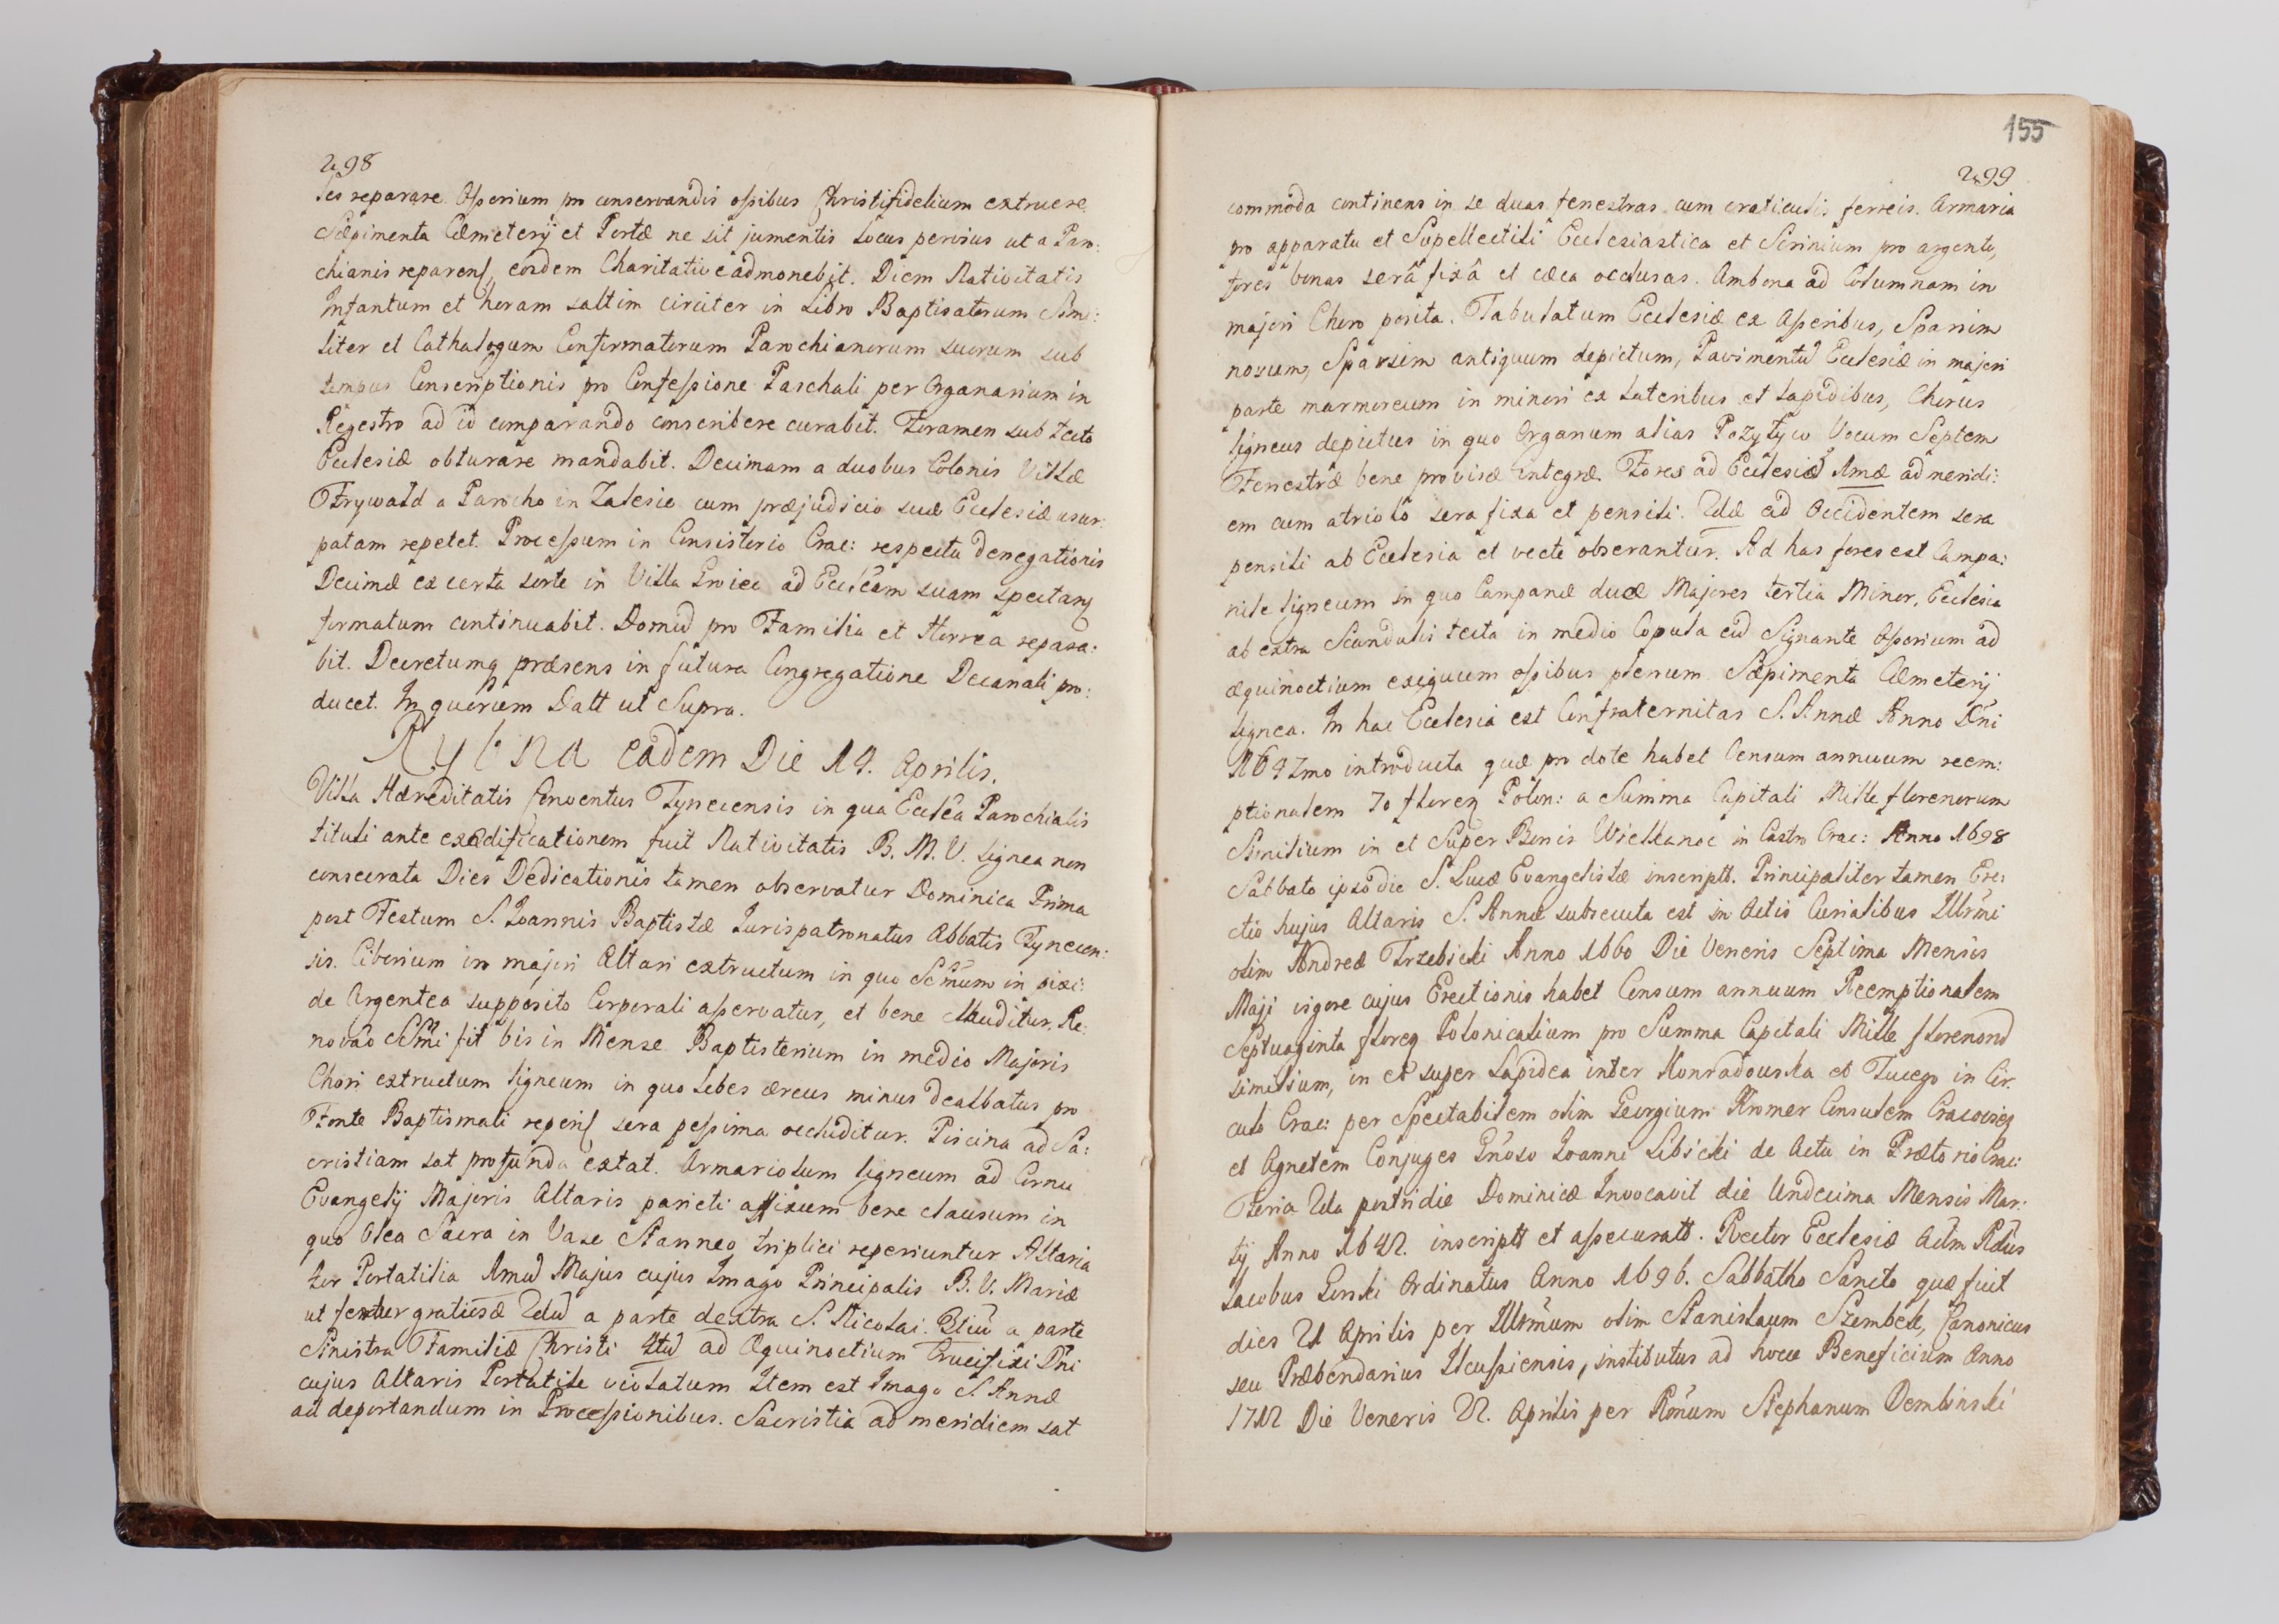 298
les reparare. Osserium pro conservandis ossibus Christifidelium extruere
Sæpimenta Cæmeterij et Portæ ne sit jumentis locus pervius ut a Paro:
chianis reparens, eosdem Charitative admonebit. Diem Nativitatis
Infantum et horam saltim circiter in Libro Baptisatorum Simi:
liter et Cathalogum Confirmatorum Parochianorum suorum sub
tempus Conscriptionis pro Confessione Paschali per Organarium in
Regestro ad id comparando conscribere curabit. Foramen sub tecto
Ecclesiæ obturare mandabit. Decimam a duobus Colonis Villæ
Frywald a Parocho in Zalesie cum præjudicio suæ Ecclesiæ usur:
patam repetet. Processum in Consistorio Crac: respectu denegationis
Decimæ ex certa sorte in Villa Groiec ad Ecclêam suam spectanq
formatum continuabit. Domû pro Familia et Horrea repara:
bit. Decretumq præsens in futura Congregatione Decanali pro:
ducet. In quorum Datt ut Supra.
Rybna eadem Die 14. Aprilis.
Villa Hæreditatis Conventus Tynecensis in qua Ecclêa Parochialis
tituli ante exædificationem fuit Nativitatis B. M. V. lignea non
consecrata Dies Dedicationis tamen observatur Dominica Prima
post Festum S. Ioannis Baptistæ Jurispatronatus Abbatis Tynecen:
sis. Ciborium in majori Altari extructum in quo Scmum in pixi:
de Argentea supposito Corporali asservatur, et bene clauditur. Re:
novâo SSmi fit bis in Mense Baptisterium in medio Majoris
Chori extructum ligneum in quo lebes æreus minus dealbatus pro
Fonte Baptismali reperis sera pessima occluditur. Piscina ad Sa:
cristiam sat profunda extat. Armariolum ligneum ad Cornu
Evangelij Majoris Altaris parieti affixum bene clausum in
quo Olea Sacra in Vase Stanneo triplici reperiuntur Altaria
ter Portatilia 1mû Majus cujus Imago Principalis B. V. Mariæ
ut fertur gratiosæ 2dû a parte dextra S. Nicolai. 3tiû a parte
Sinistra Familiæ Christi 4tû ad Æquinoctium Crucifixi Dñi
cujus Altaris Portatile violatum Item est Imago S. Annæ
ad deportandum in Processionibus. Sacristia ad meridiem sat
155
299
commoda continens in se duas fenestras cum craticulis ferreis. Armaria
pro apparatu et Supellectili Ecclesiastica et Scrinium pro argento,
fores bonas serâ fixâ et cæca occlusas. Ambona ad Columnam in
majori Choro posita. Tabulatum Ecclesiæ ex Asseribus, Sparsim
novum, Sparsim antiquum depictum, Pavimentû Ecclesiæ in majori
parte marmoreum in minori ex lateribus et lapidibus, Chorus
ligneus depictus in quo Organum alias Pozytyw Vocum Septem
Fenestræ bene provisæ integræ. Fores ad Ecclesiæ 1mæ ad meridi:
em cum atriolo sera fixa et pensili. 2dæ ad Occidentem sera
pensili ab Ecclesia et vecte obserantur. Ad has fores est Campa:
nile ligneum in quo Campanæ duæ Majores tertia Minor, Ecclesia
ab extra Scandulis tecta in medio Copula cû Signante Osserium ad
æquinoctium exiguum ossibus plenum Sæpimenta Cæmeterij
lignea. In hac Ecclesia est Confraternitas S. Annæ Anno Dñi
1647mo introducta quæ pro dote habet Censum annuum reem:
ptionalem 70 floreq Polon: a Summa Capitali Mille florenorum
Similium in et Super Bonis Wielkanoc in Castro Crac: Anno 1698
Sabbato ipso die S. Lucæ Evangelistæ inscriptt. Principaliter tamen Ere:
ctio hujus Altaris S. Annæ subsecuta est in Actis Curialibus Illrmi
olim Andreæ Trzebicki Anno 1660 Die Veneris Septima Mensis
Maji vigore cujus Erectionis habet Censum annuum Reemptionalem
Septuaginta floreq Polonicalium pro Summa Capitali Mille florenorû
similium, in et super Lapidea inter Konradowska et Tucego in Cir:
culo Crac: per Spectabilem olim Georgium Kromer Consulem Cracovieq
et Agnetem Conjuges Gnôso Ioanni Libicki de Actu in Prætorio Crac:
Feria 2da postridie Dominicæ Invocavit die Undecima Mensis Mar:
tij Anno 1642. inscriptt et assecuratt. Rector Ecclesiæ Adm Rdus
Iacobus Gorski Ordinatus Anno 1696. Sabbatho Sancto quæ fuit
dies 21 Aprilis per Illrmum olim Stanislaum Szembek, Canonicus
seu Præbendarius Ilcussiensis, institutus ad hocce Beneficium Anno
1712 Die Veneris 22. Aprilis per Rmum Stephanum Dembinski